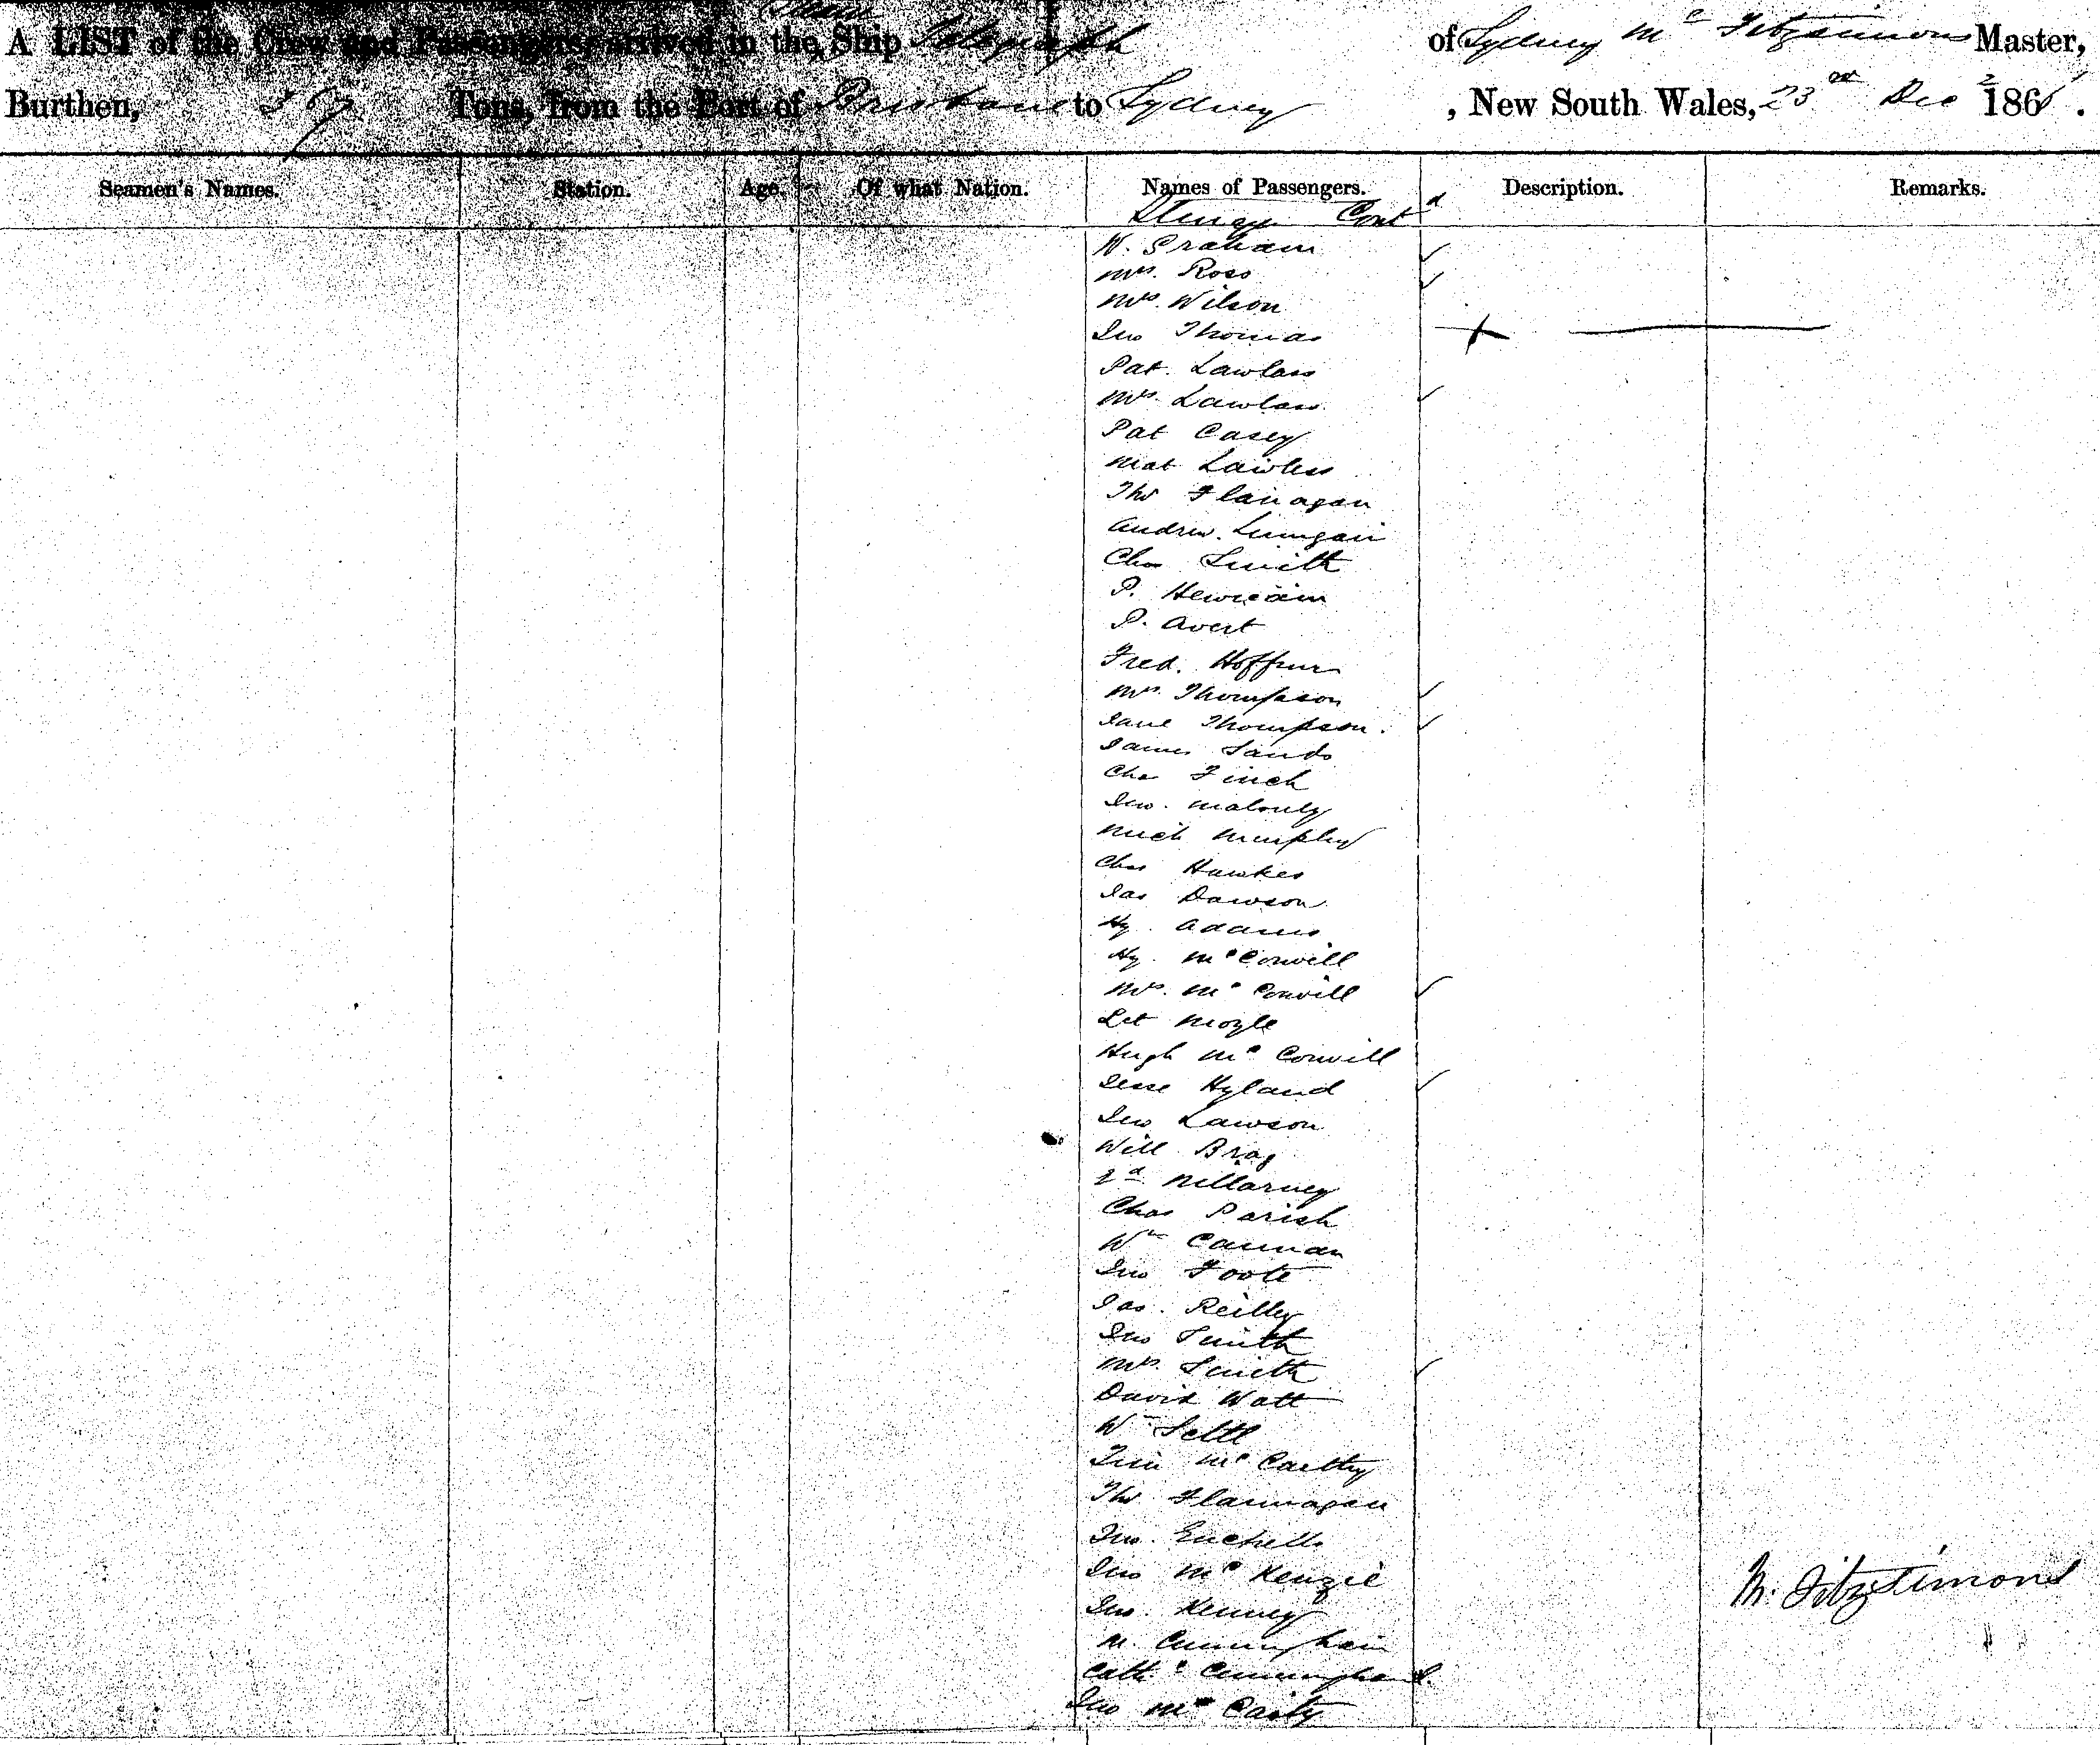 A LIST of the Crew and Passengers arrived in the Steam Ship Telegraph of Sydney Mc Fitzsimmons Master,
Burthen, 367 Tons, from the Port of Brisbane to Sydney , New South Wales, 23rd Dec 1862.
Seamen's Names. Station. Age. Of what Nation. Names of Passengers. Description. Remarks.
Steerage Contd
W. Graham
Mrs. Ross
Mrs. Wilson
Jno Thomas
Pat. Lawless
Mrs. Lawless
Pat Casey
Mat Lawless
Thos Flanagan
Andrew
Chas Smith
P.
P. Avert
Fred. Hoffner
Mrs. Thompson
Jane Thompson.
James Sands
Chas Finch
Jno. Malouly
Mich Murphy
Chas Hawkes
Jas Dawson
Hy. Adams
Hy. McConvill
Mrs. Mc Convill
Let Moyle
Hugh Mc Convill
Jesse Hyland
Jno Lawson
Will Brag
2d Millarney
Chas Parish
Wm Cannan
Jno Foote
Jas. Reilly
Jno Smith
Mrs. Smith
David Watt
Wm Settl
Tim McCarthy
Thos Flannagan
Jno.
Jno McKenzie
Jno. Kenney
M. Cunningham
Cathe Cunningham
Jno McCarty
M. Fitzsimons